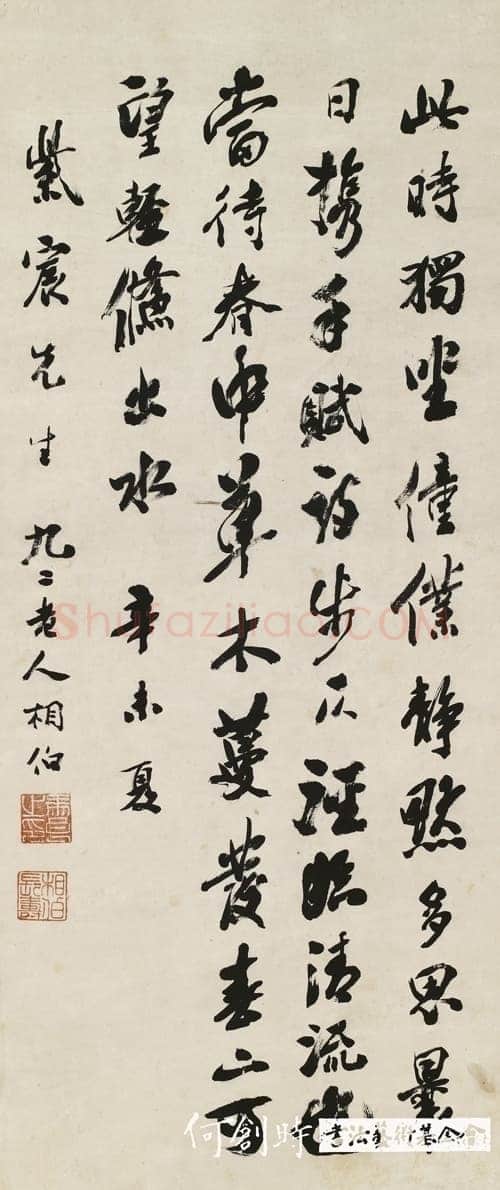 此時獨坐僮僕靜默多思曩
日携手賦詩步仄徑臨清流也
當待春中草木蔓發春山可
望輕鯈出水 辛未夏
紫宸先生 九二老人相伯
相伯長壽
Shufaziliao.COM
何創時書法藝術基金會